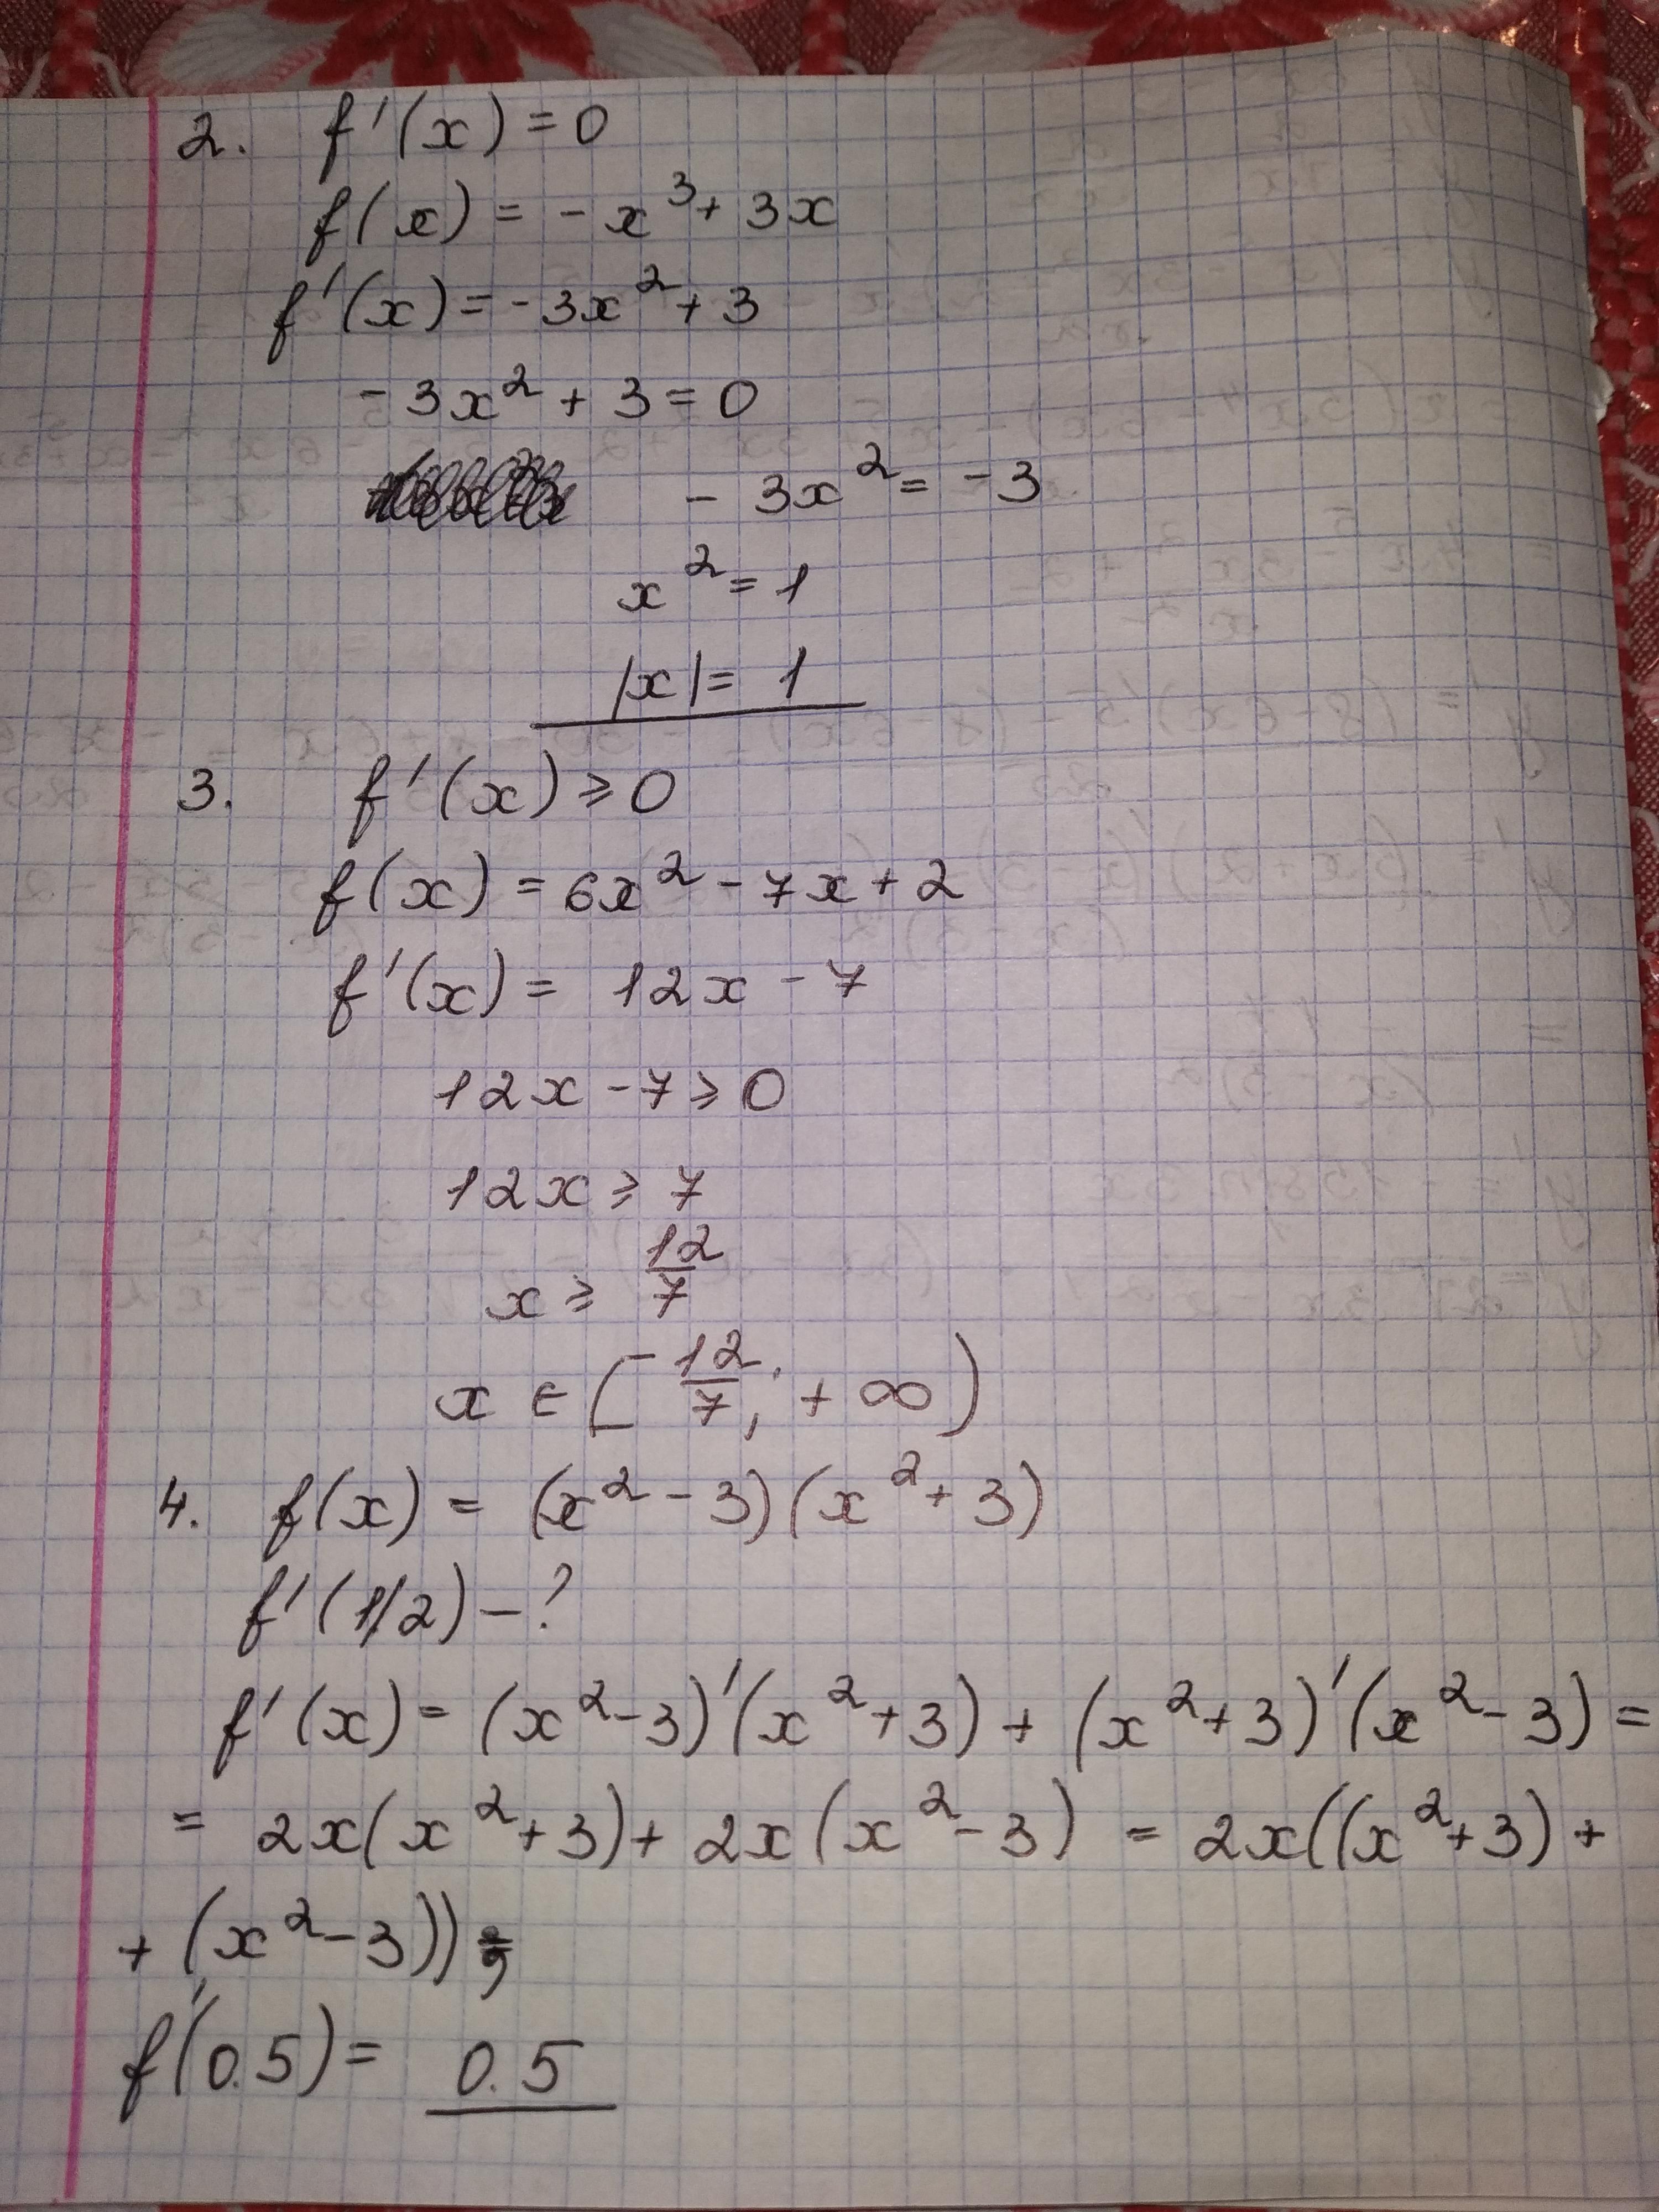 2. f'(x) = 0
f(x) = - x³ + 3x
f'(x) = - 3x² + 3
- 3x² + 3 = 0
- 3x² = -3
x² = 1
|x| = 1
3. f'(x) ⩾ 0
f(x) = 6x² - 7x + 2
f'(x) = 12x - 7
12x - 7 ⩾ 0
12x ⩾ 7
x ⩾ 12/7
x ∈ [12/7; + ∞)
4. f(x) = (x² - 3)(x² + 3)
f'(1/2) - ?
f'(x) = (x² - 3)'(x² + 3) + (x² + 3)'(x² - 3) =
= 2x(x² + 3) + 2x(x² - 3) = 2x((x² + 3) +
+ (x² - 3));
f'(0.5) = 0.5